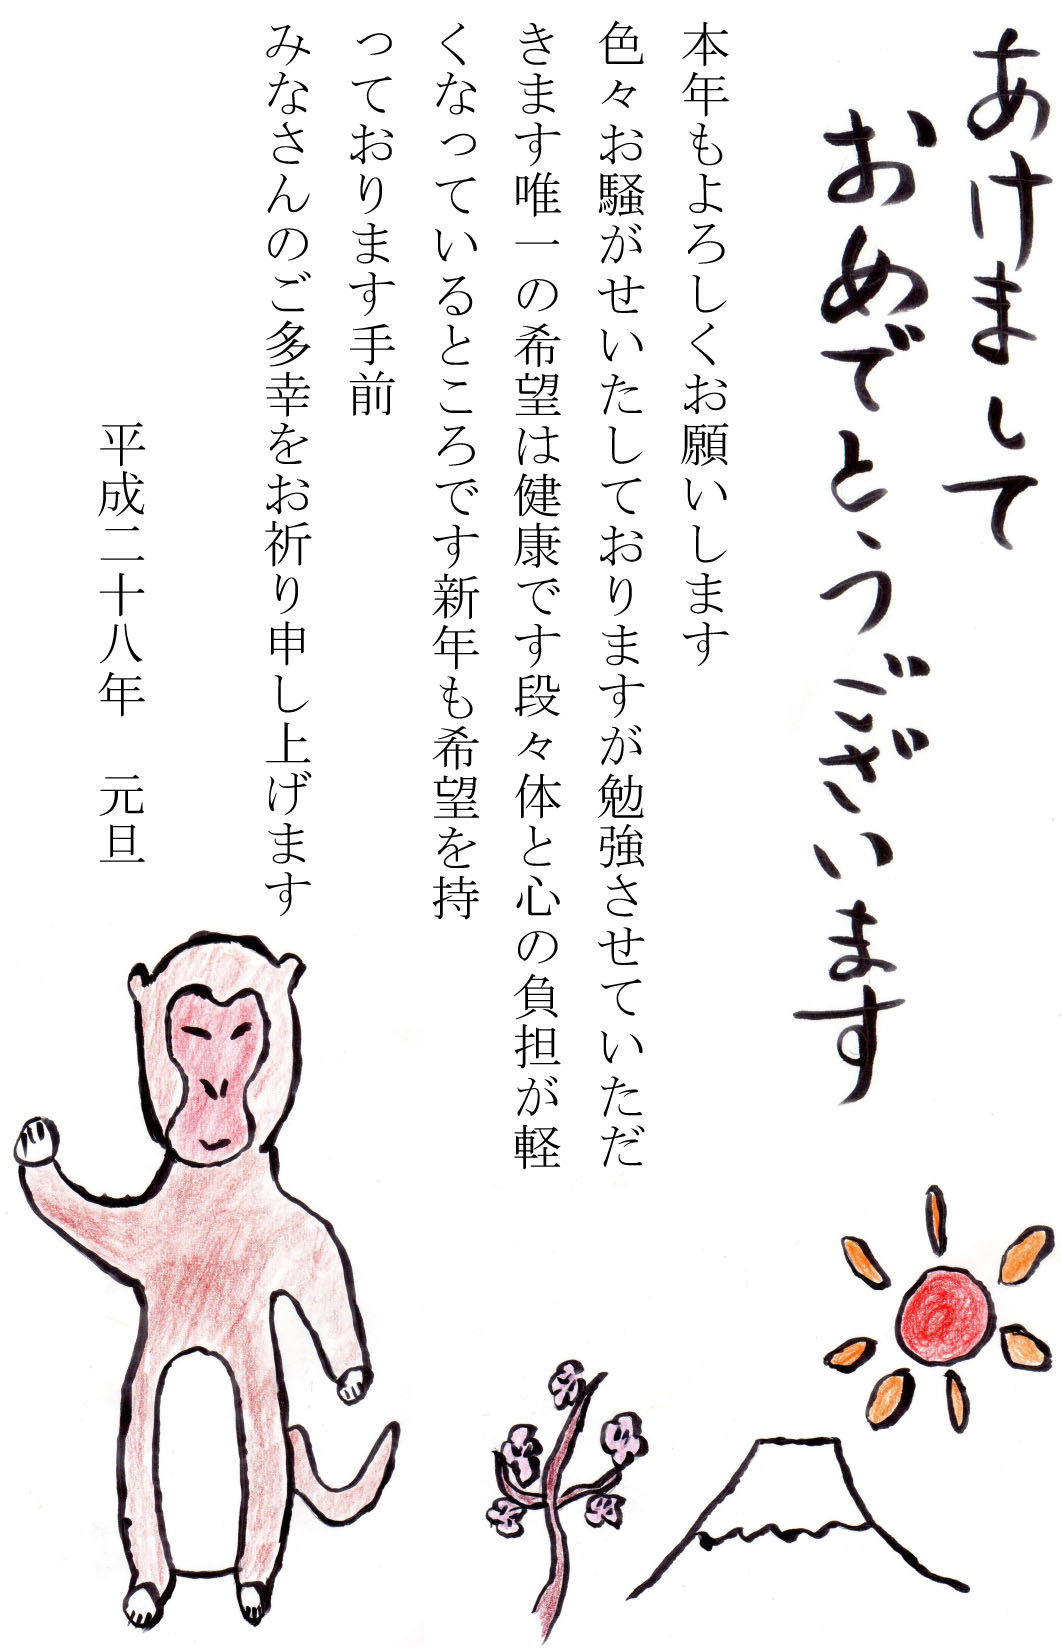 あけまして
おめでとうございます
本年もよろしくお願いします
色々お騒がせいたしておりますが勉強させていただ
きます唯一の希望は健康です段々体と心の負担が軽
くなっているところです新年も希望を持
っております手前
みなさんのご多幸をお祈り申し上げます
平成二十八年　元旦